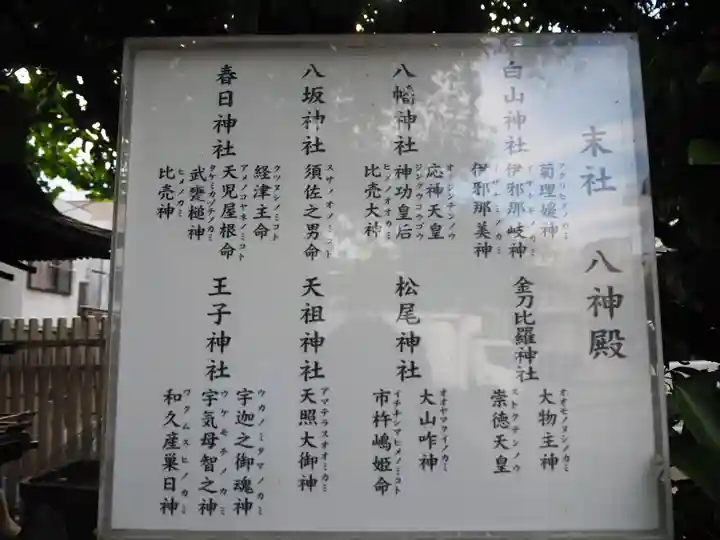 末社 八神殿
白山神社
菊理媛神
伊邪那岐神
伊邪那美神
八幡神社
応神天皇
神功皇后
比売大神
八坂神社
須佐之男命
スサノオノミコト
春日神社
経津主命
フツヌシノミコト
天児屋根命
アメノコヤネノミコト
武甕槌神
タケミカヅチノカミ
比売神
ヒメノカミ
金刀比羅神社
大物主神
オオモノヌシノカミ
崇徳天皇
ストクテンノウ
松尾神社
大山咋神
オオヤマクイノカミ
市杵嶋姫命
イチキシマヒメノミコト
天祖神社
天照大御神
アマテラスオオミカミ
王子神社
宇迦之御魂神
ウカノミタマノカミ
宇気母智之神
ウケモチノカミ
和久産巣日神
ワクムスヒノカミ